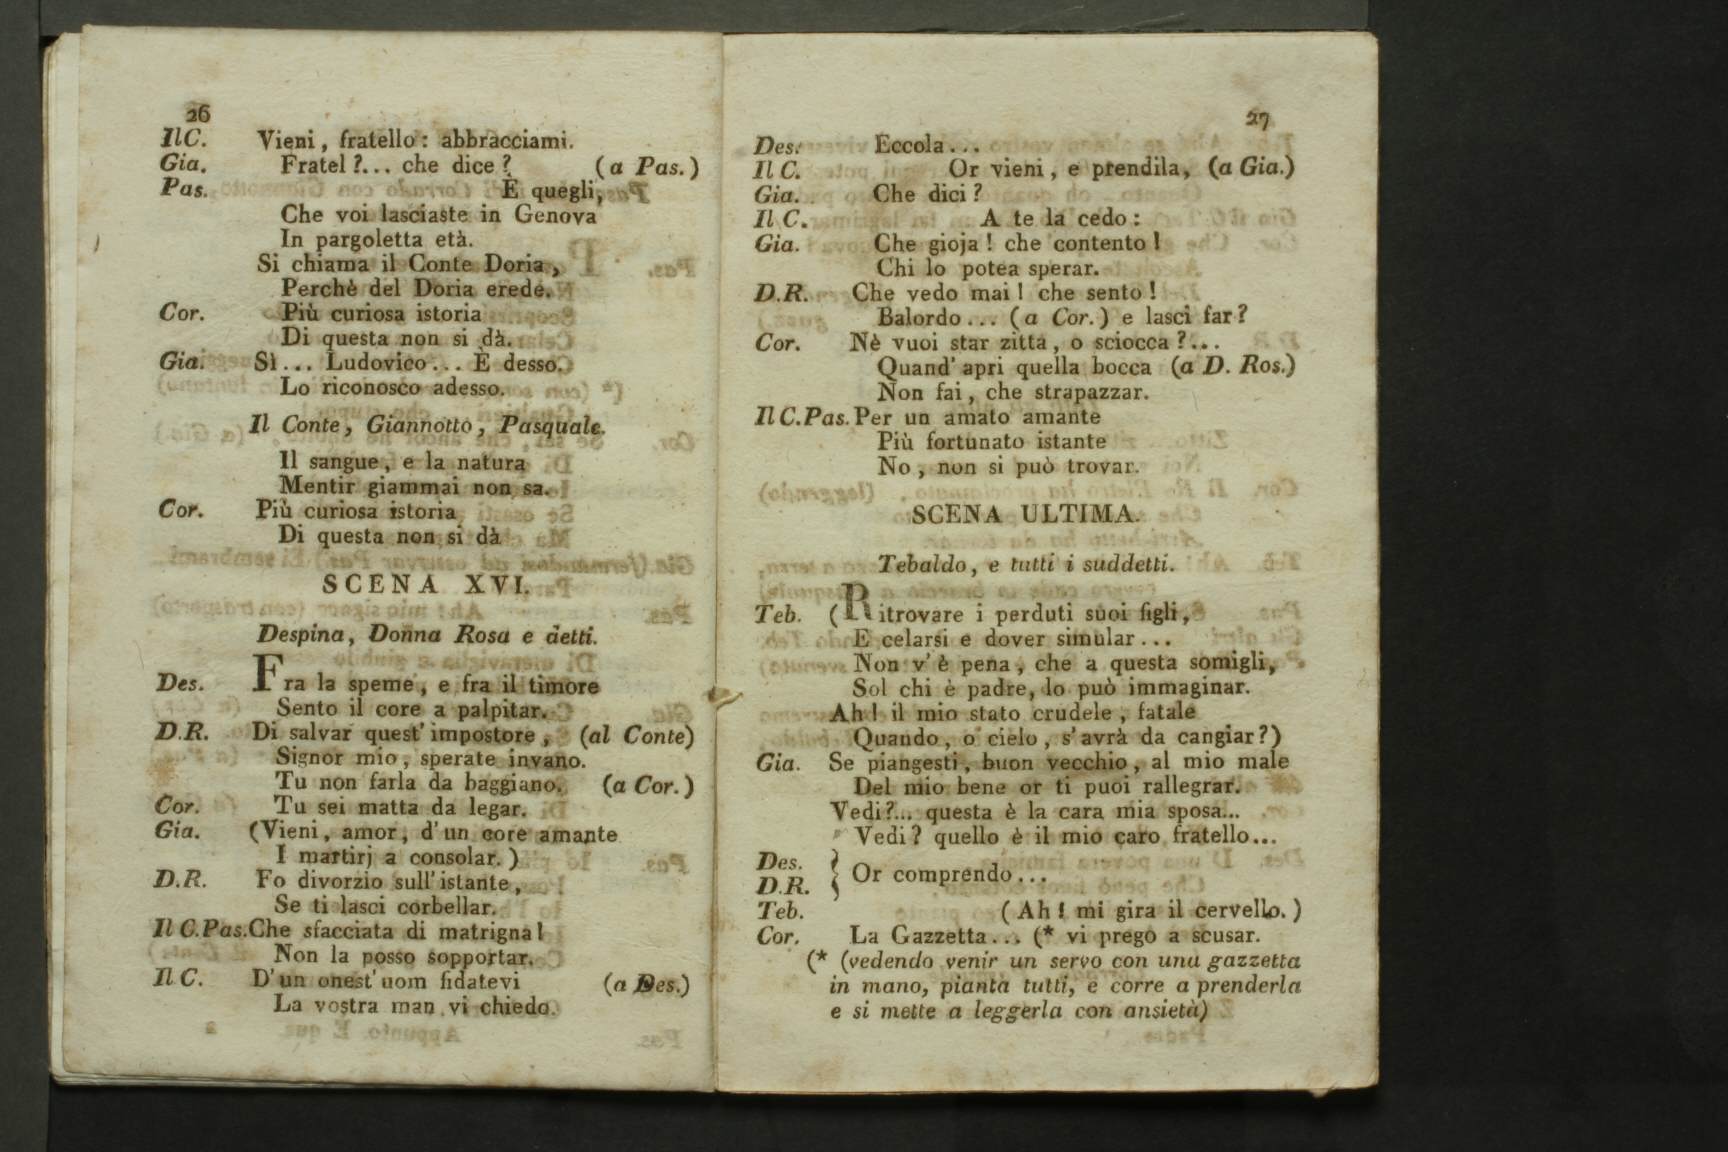 26
Il C. Vieni, fratello: abbracciami.
Gia. Fratel?... che dice? (a Pas.)
Pas. È quegli,
Che voi lasciaste in Genova
In pargoletta età.
Si chiama il Conte Doria,
Perchè del Doria erede.
Cor. Più curiosa istoria
Di questa non si dà.
Gia. Sì... Ludovico... È desso.
Lo riconosco adesso.
Il Conte, Giannotto, Pasquale.
Il sangue, e la natura
Mentir giammai non sa.
Cor. Più curiosa istoria
Di questa non si dà
SCENA XVI.
Despina, Donna Rosa e detti.
Des. Fra la speme, e fra il timore
Sento il core a palpitar.
D.R. Di salvar quest'impostore, (al Conte)
Signor mio, sperate invano.
Tu non farla da baggiano. (a Cor.)
Cor. Tu sei matta da legar.
Gia. (Vieni, amor, d'un core amante
I martirj a consolar.)
D.R. Fo divorzio sull'istante,
Se ti lasci corbellar.
Il C.Pas. Che sfacciata di matrigna!
Non la posso sopportar.
Il C. D'un onest'uom fidatevi (a Des.)
La vostra man vi chiedo.
27
Des. Eccola...
Il C. Or vieni, e prendila, (a Gia.)
Gia. Che dici?
Il C. A te la cedo:
Gia. Che gioja! che contento!
Chi lo potea sperar.
D.R. Che vedo mai! che sento!
Balordo... (a Cor.) e lasci far?
Cor. Nè vuoi star zitta, o sciocca?...
Quand' apri quella bocca (a D. Ros.)
Non fai, che strapazzar.
Il C.Pas. Per un amato amante
Più fortunato istante
No, non si può trovar.
SCENA ULTIMA.
Tebaldo, e tutti i suddetti.
Teb. (Ritrovare i perduti suoi figli,
E celarsi e dover simular...
Non v'è pena, che a questa somigli,
Sol chi è padre, lo può immaginar.
Ah! il mio stato crudele, fatale
Quando, o cielo, s'avrà da cangiar?)
Gia. Se piangesti, buon vecchio, al mio male
Del mio bene or ti puoi rallegrar.
Vedi?... questa è la cara mia sposa...
Vedi? quello è il mio caro fratello...
Des.
D.R. } Or comprendo...
Teb. (Ah! mi gira il cervello.)
Cor. La Gazzetta... (* vi prego a scusar.
(* (vedendo venir un servo con una gazzetta
in mano, pianta tutti, e corre a prenderla
e si mette a leggerla con ansietà)